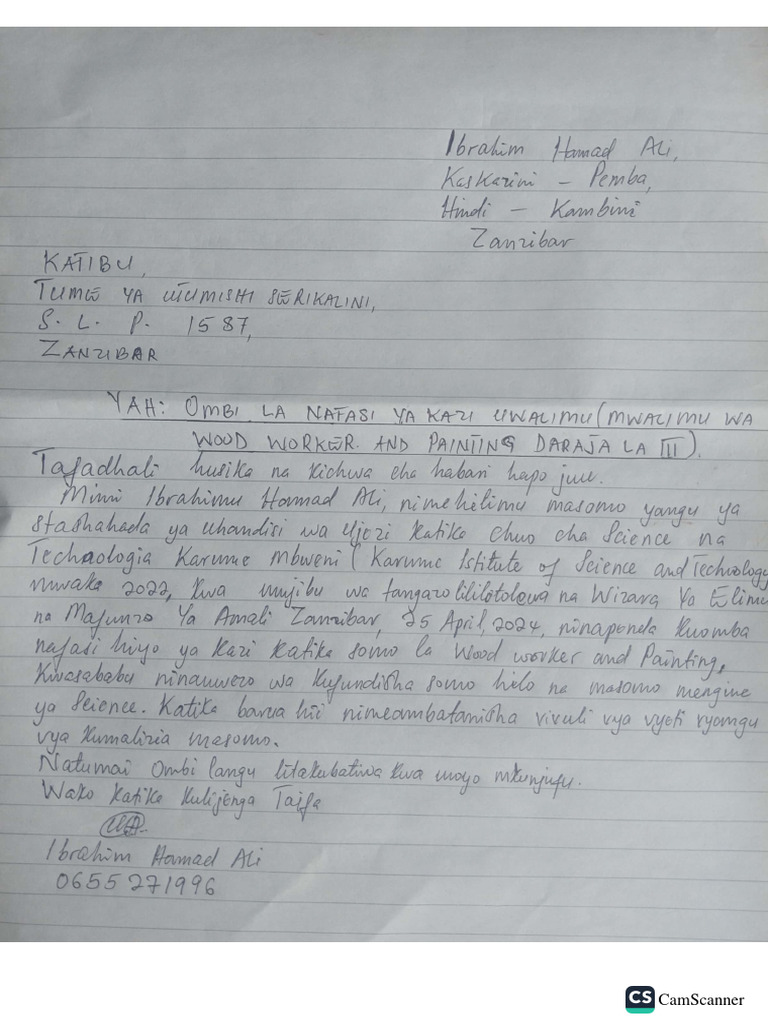 Ibrahim Hamad Ali,
Kaskazini - Pemba,
Hindi - Kambini
Zanzibar
KATIBU,
TUME YA UTUMISHI SERIKALINI,
S. L. P. 1587,
ZANZIBAR
YAH: OMBI LA NAFASI YA KAZI UWALIMU (MWALIMU WA
WOOD WORKER AND PAINTING DARAJA LA III).
Tafadhali husika na kichwa cha habari hapo juu.
Mimi Ibrahimu Hamad Ali, nimehitimu masomo yangu ya
stashahada ya uhandisi wa Ujezi katika chuo cha Science na
Technologia Karume Mbweni (Karume Istitute of Science and Technology
mwaka 2022, kwa mujibu wa tangazo lililotolewa na Wizara Ya Elimu
na Mafunzo Ya Amali Zanzibar, 25 April, 2024, ninapenda kuomba
nafasi hiyo ya kazi katika somo la Wood worker and Painting,
Kwasababu ninauwezo wa kufundisha somo hilo na masomo mengine
ya Science. Katika barua hii nimeambatanisha vivuli vya vyeti vyangu
vya kumalizia masomo.
Natumai Ombi langu litakubaliwa kwa moyo mkunjufu.
Wako katika kulijenga Taifa
Ibrahim Hamad Ali
0655271996
CS CamScanner